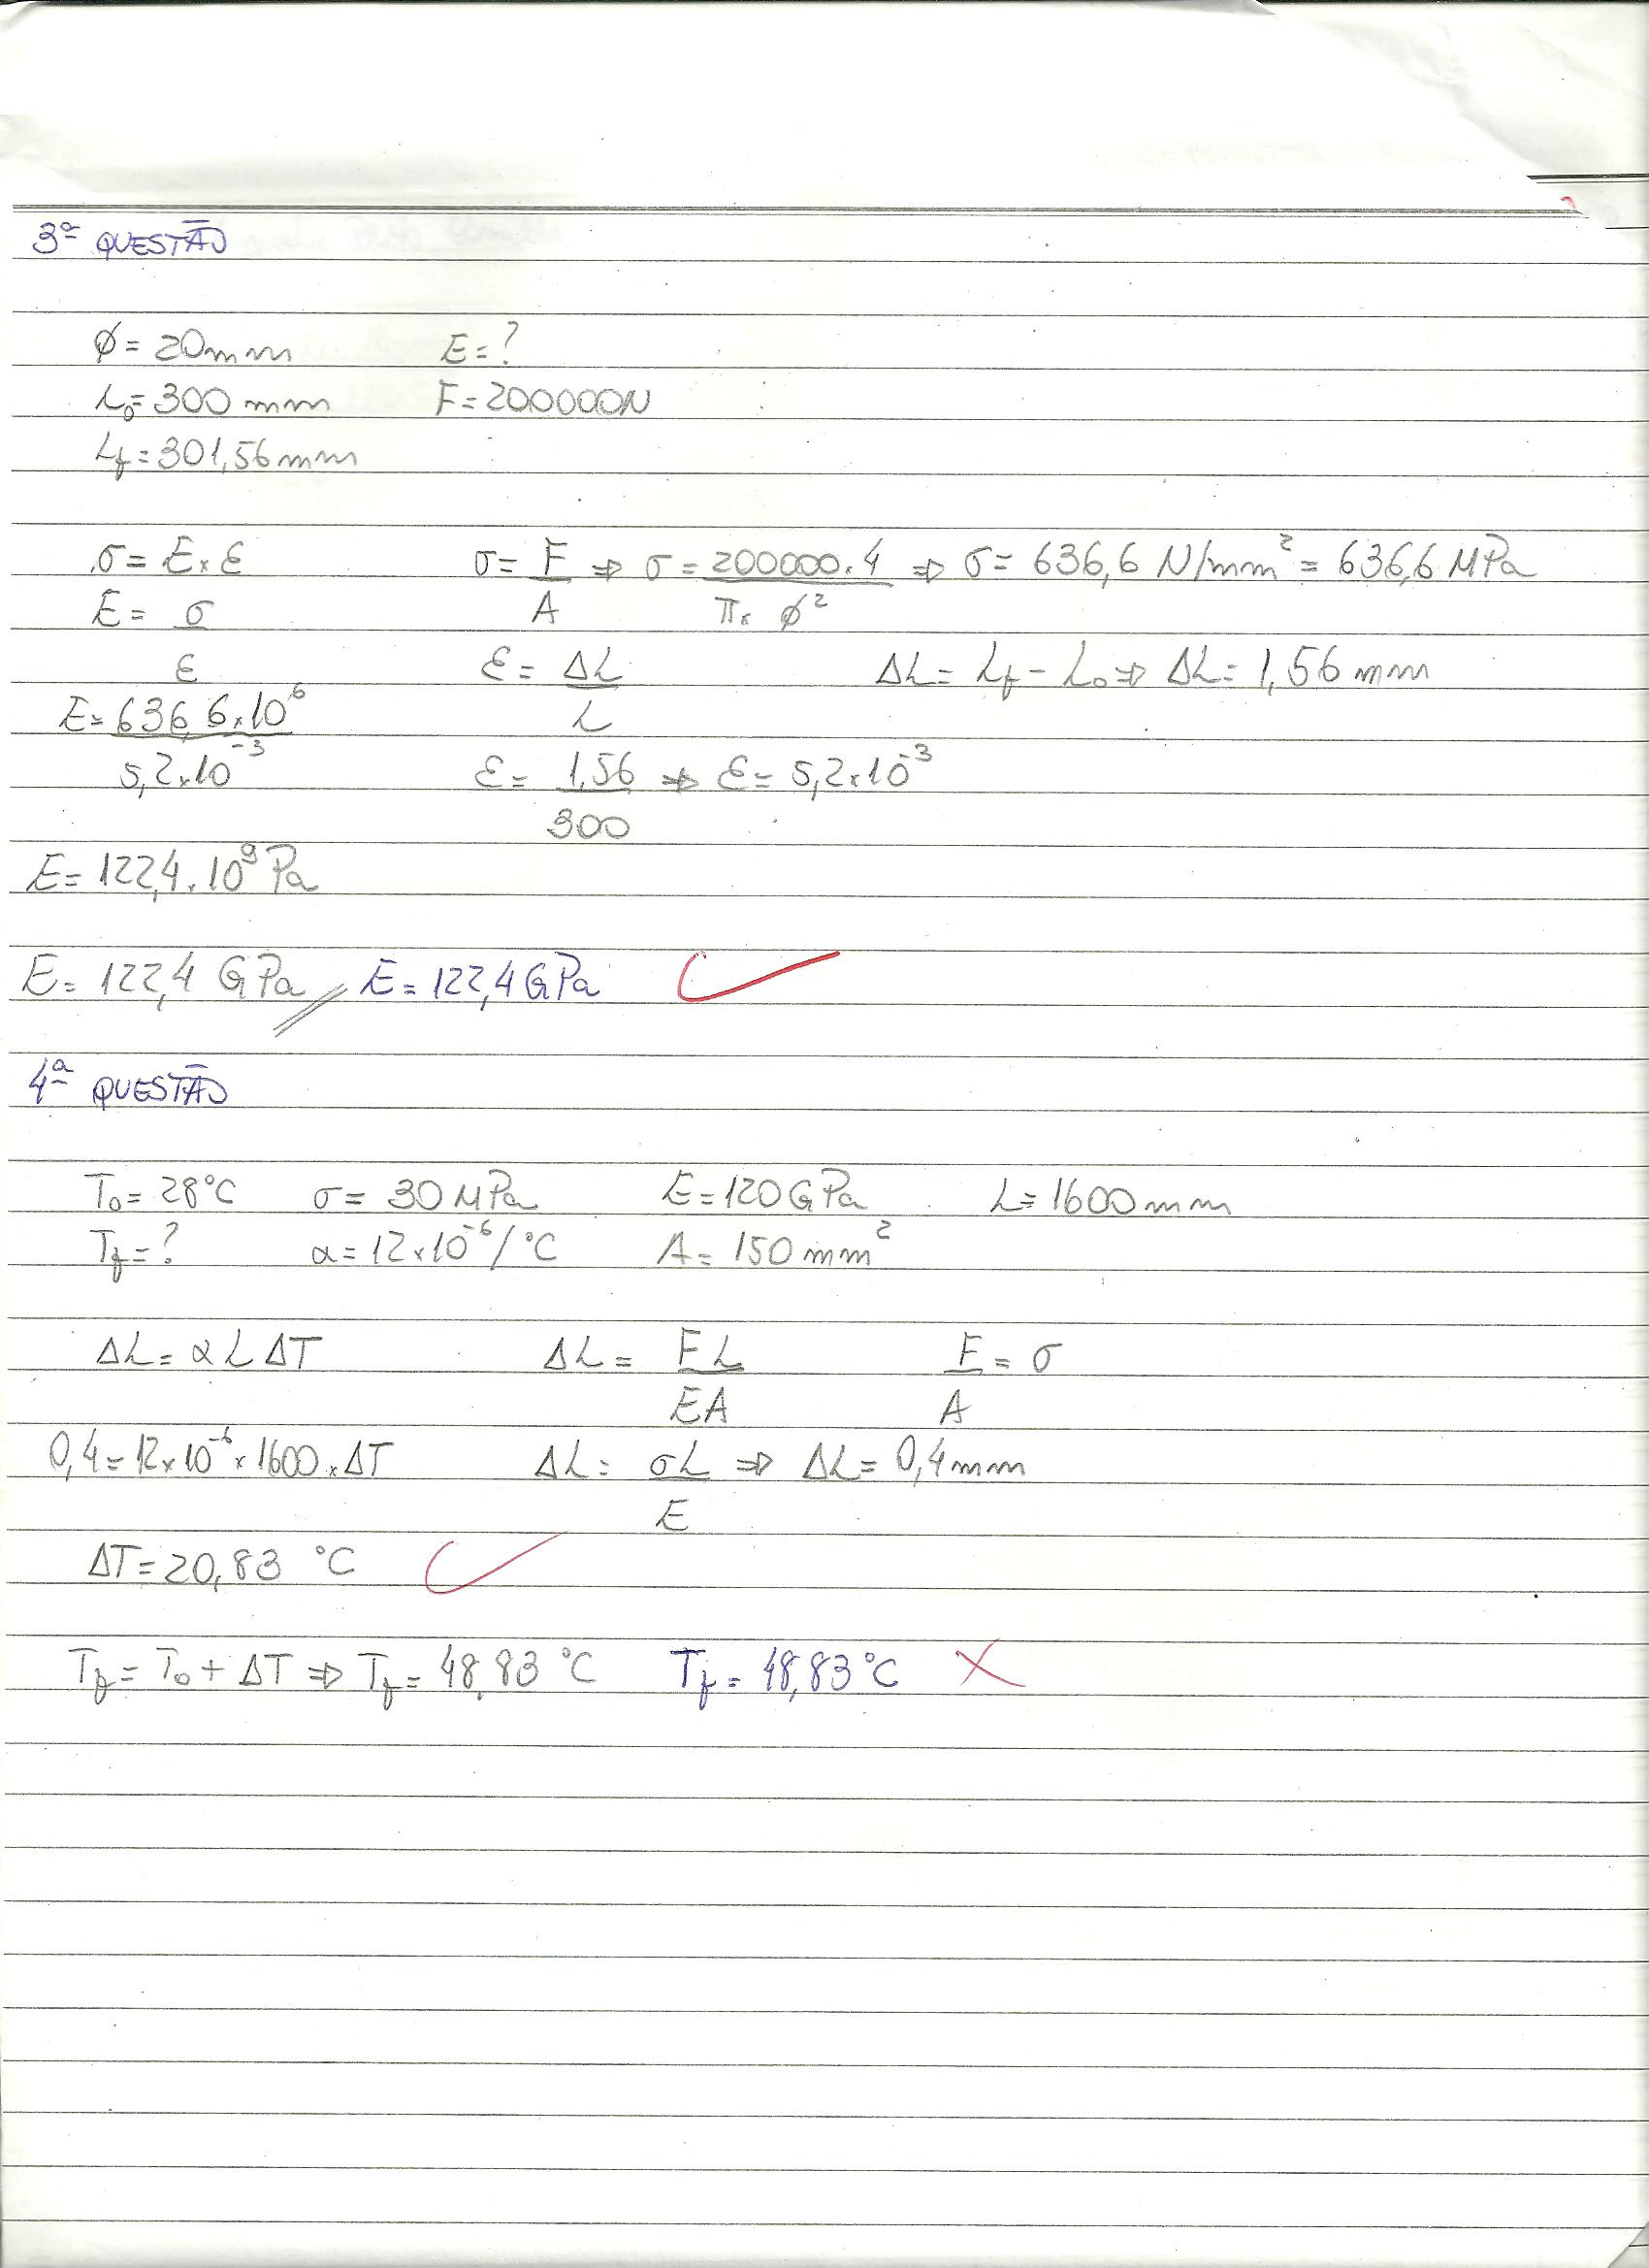 3ª QUESTÃO
ϕ = 20mm E = ?
L₀ = 300 mm F = 200000N
Lf = 301,56 mm
σ = E × ε σ = F/A ⇒ σ = 200000.4/π × ϕ² ⇒ σ = 636,6 N/mm² = 636,6 MPa
E = σ/ε ε = ΔL/L ΔL = Lf - L₀ ⇒ ΔL = 1,56 mm
E = 636,6 × 10⁶/5,2 × 10⁻³ ε = 1,56/300 ⇒ ε = 5,2 × 10⁻³
E = 122,4 . 10⁹ Pa
E = 122,4 GPa // E = 122,4 GPa
4ª QUESTÃO
T₀ = 28°C σ = 30 MPa E = 120 GPa L = 1600 mm
Tf = ? α = 12 × 10⁻⁶/°C A = 150 mm²
ΔL = α L ΔT ΔL = FL/EA F/A = σ
0,4 = 12 × 10⁻⁶ × 1600 × ΔT ΔL = σL/E ⇒ ΔL = 0,4 mm
ΔT = 20,83 °C
Tf = T₀ + ΔT ⇒ Tf = 48,83 °C Tf = 48,83 °C